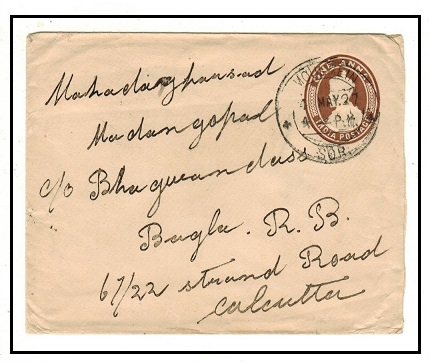 Mahadaprasad
Madangopal
c/o Bhagwandass
Bagla. R. B.
67/22 strand Road
Calcutta
ONE ANNA
INDIA POSTAGE
MAY.27
P.M.
SDR.